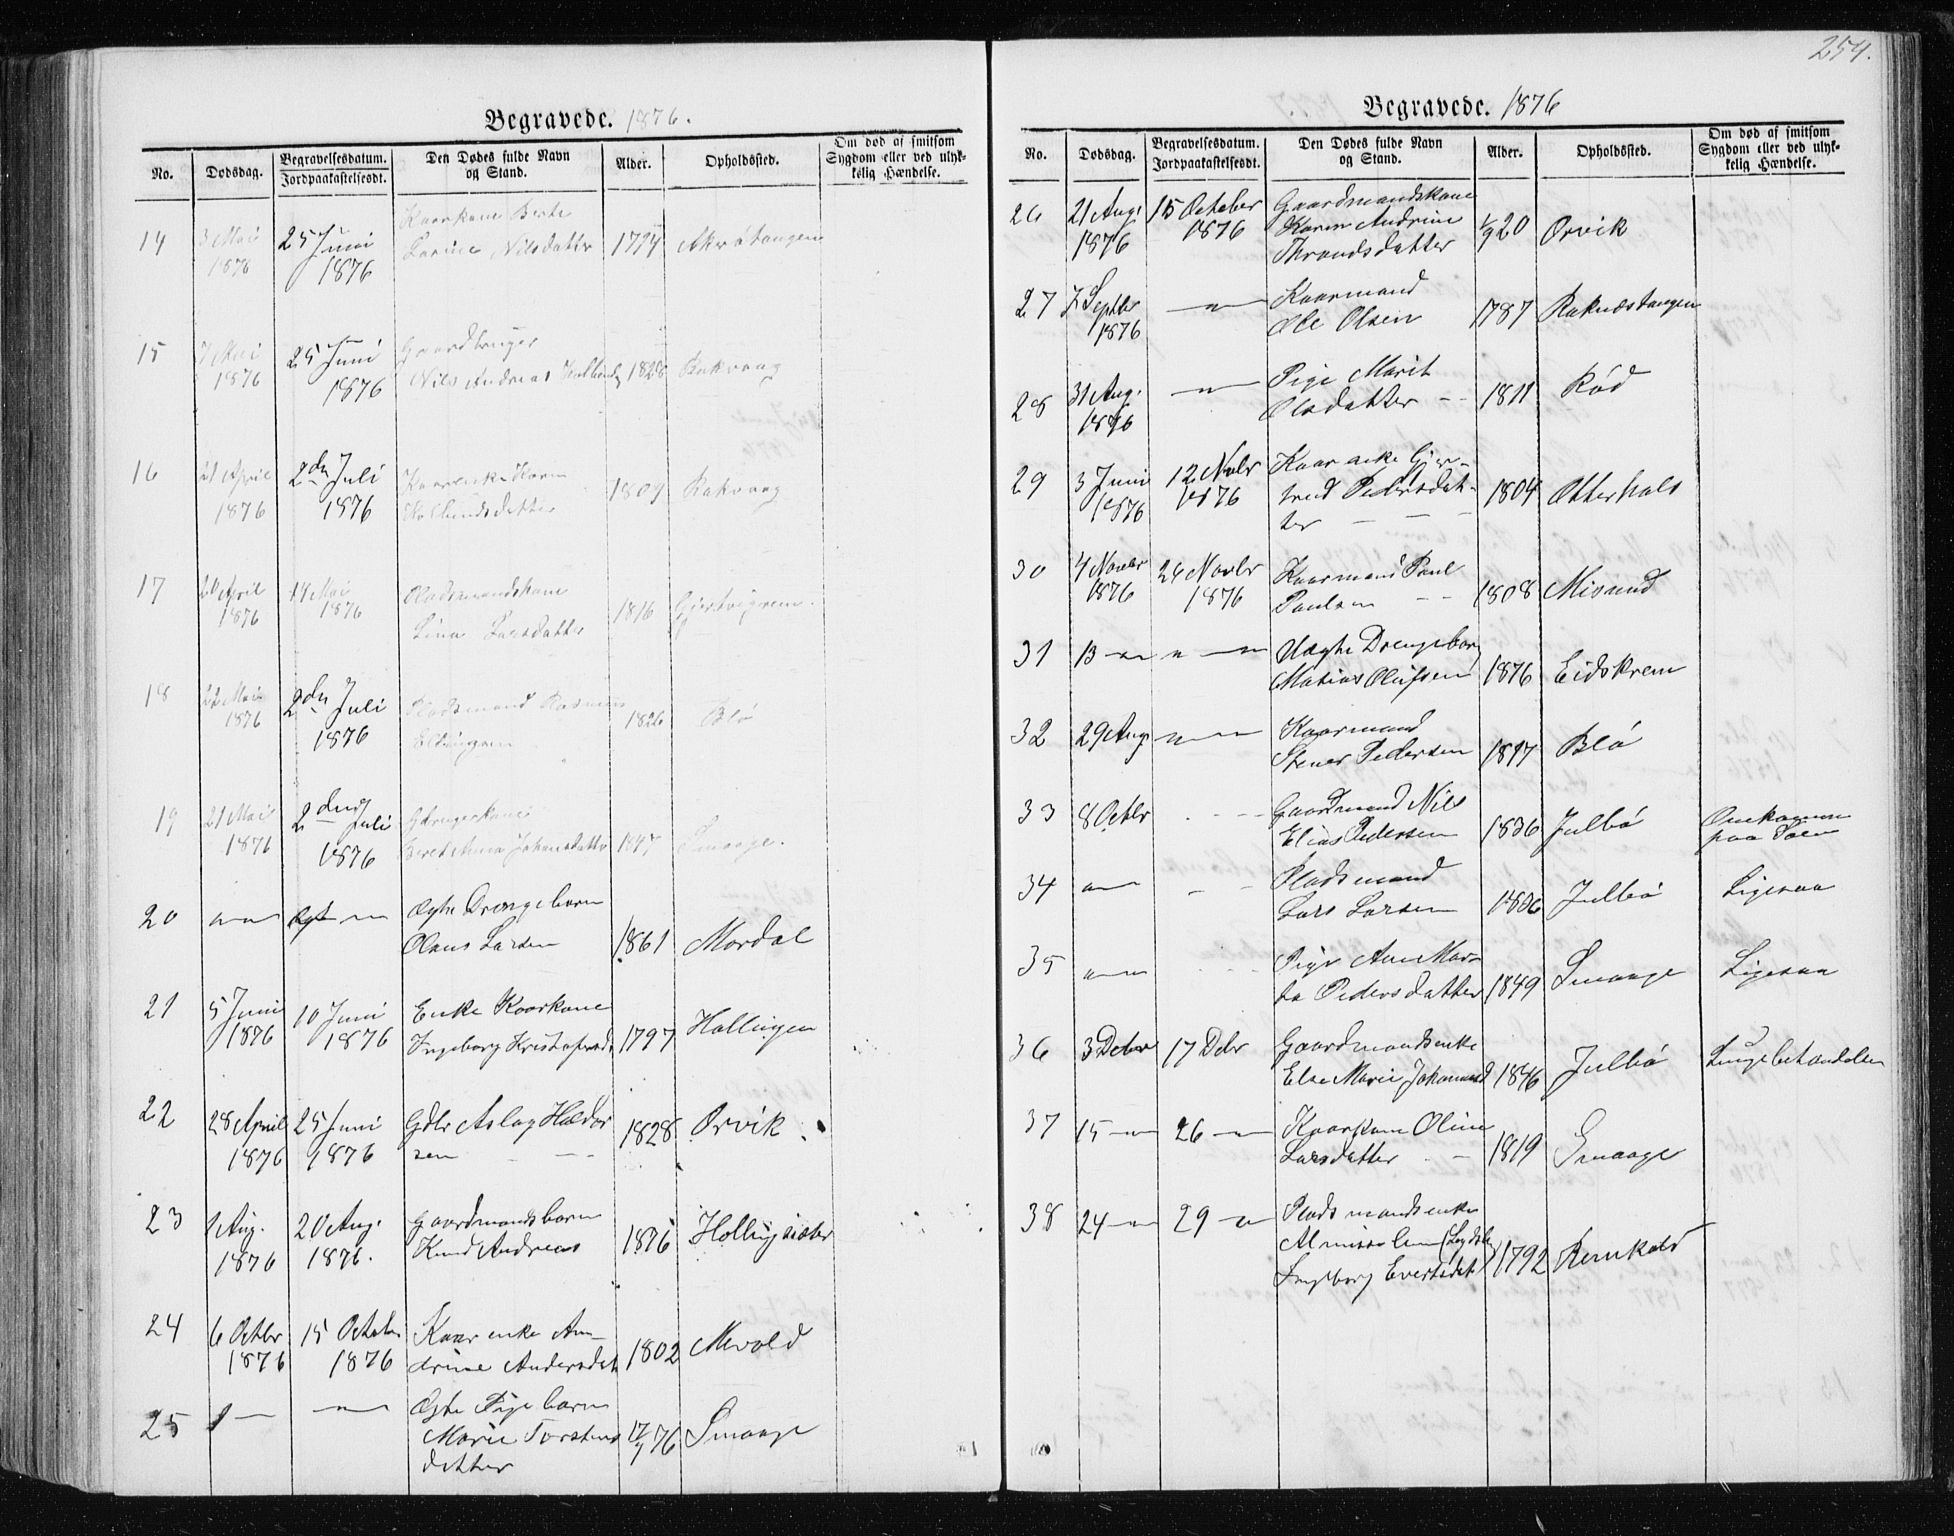 254.
Begravede. 1876.
No. Dødsdag. Begravelsesdatum. Jordpaakastelsesdt. Den Dødes fulde Navn og Stand. Alder. Opholdssted. Om død af smitsom Sygdom eller ved ulykkelig Hændelse.
14 3 Mai 1876 25 Juni 1876 Kaarkone Berte
Larine Nilsdatter 1794 Akrøtangen
15 7 Mai 1876 25 Juni 1876 Gaardbruger
Nils Andreas 1828 Rakvaag
16 21 April 1876 2den Juli 1876 Kaarenke Karen
Kolbeinsdatter 1804 Rakvaag
17 20 April 1876 14 Mai 1876 Pladsmandskone
Lina Larsdatter 1816
18 22 Mai 1876 2den Juli 1876 Pladsmand Rasmus
1826 Blø
19 21 Mai 1876 2den Juli 1876 Gbrugerkone
Beret Anna Johansdatter 1847 Smaage.
20 — " — Ægte Drengebarn
Olaus Larsen 1861 Mordal
21 5 Juni 1876 10 Juni 1876 Enke Kaarkone
Ingeborg Kristofersd. 1797 Hollingen
22 28 April 1876 25 Juni 1876 Gdbr Aslag Haldor
sen 1828 Orvik
23 1 Aug. 1876 20 Aug. 1876. Gaardmandsbarn
Knud Andreas 1876 Hollingsæter
24 6 Octbr 1876 15 October 1876 Kaarenke An-
drine Andersdat 1802 Mevold
25 — " — Ægte Pigebarn
Marie Torstens
datter 76 Smaage
Begravede. 1876
No. Dødsdag. Begravelsesdatum. Jordpaakastelsesdt. Den Dødes fulde Navn og Stand. Alder. Opholdssted. Om død af smitsom Sygdom eller ved ulykkelig Hændelse.
26 21 Aug. 1876 15 October 1876 Gaardmandskone
Karen Andrine
Throndsdatter 20 Orvik
27 7 Septbr 1876 — " — Kaarmand
Ole Olsen 1787 Raknæstangen
28 31 Aug. 1876 — " — Pige Marit
Olsdatter 1811 Rød
29 3 Juni 1876 12 Novbr 1876 Kaarenke Gjer-
trud Pedersdat-
ter 1804 Otterhals
30 4 Novbr 1876 26 Novbr 1876 Kaarmand Paul
Paulsen 1808 Misund
31 13 — " — " — Uægte Drengebarn
Matias Olufsen 1876 Eidskrem
32 29 Aug — " — Kaarmand
Stener Pedersen 1817 Blø
33 8 Octbr Gaardmand Nils
Elias Pedersen 1836 Julbø Omkommen
paa Søen
34 — " — Pladsmand
Lars Larsen 1836 Julbø Ligesaa
35 — " — Pige Ane Mar-
ta Pedersdatter 1849 Smaage Ligesaa
36 3 Decbr 17 Decbr Gaardmandsenke
Else Marie Johannesd 1846 Julbø
37 15 — " — 26 — " — Kaarkone Oline
Larsdatter 1819 Smaage
38 24 — " — 29 — " — Pladsmandsenke
Almisselem
Ingeborg Evertsdat 1792